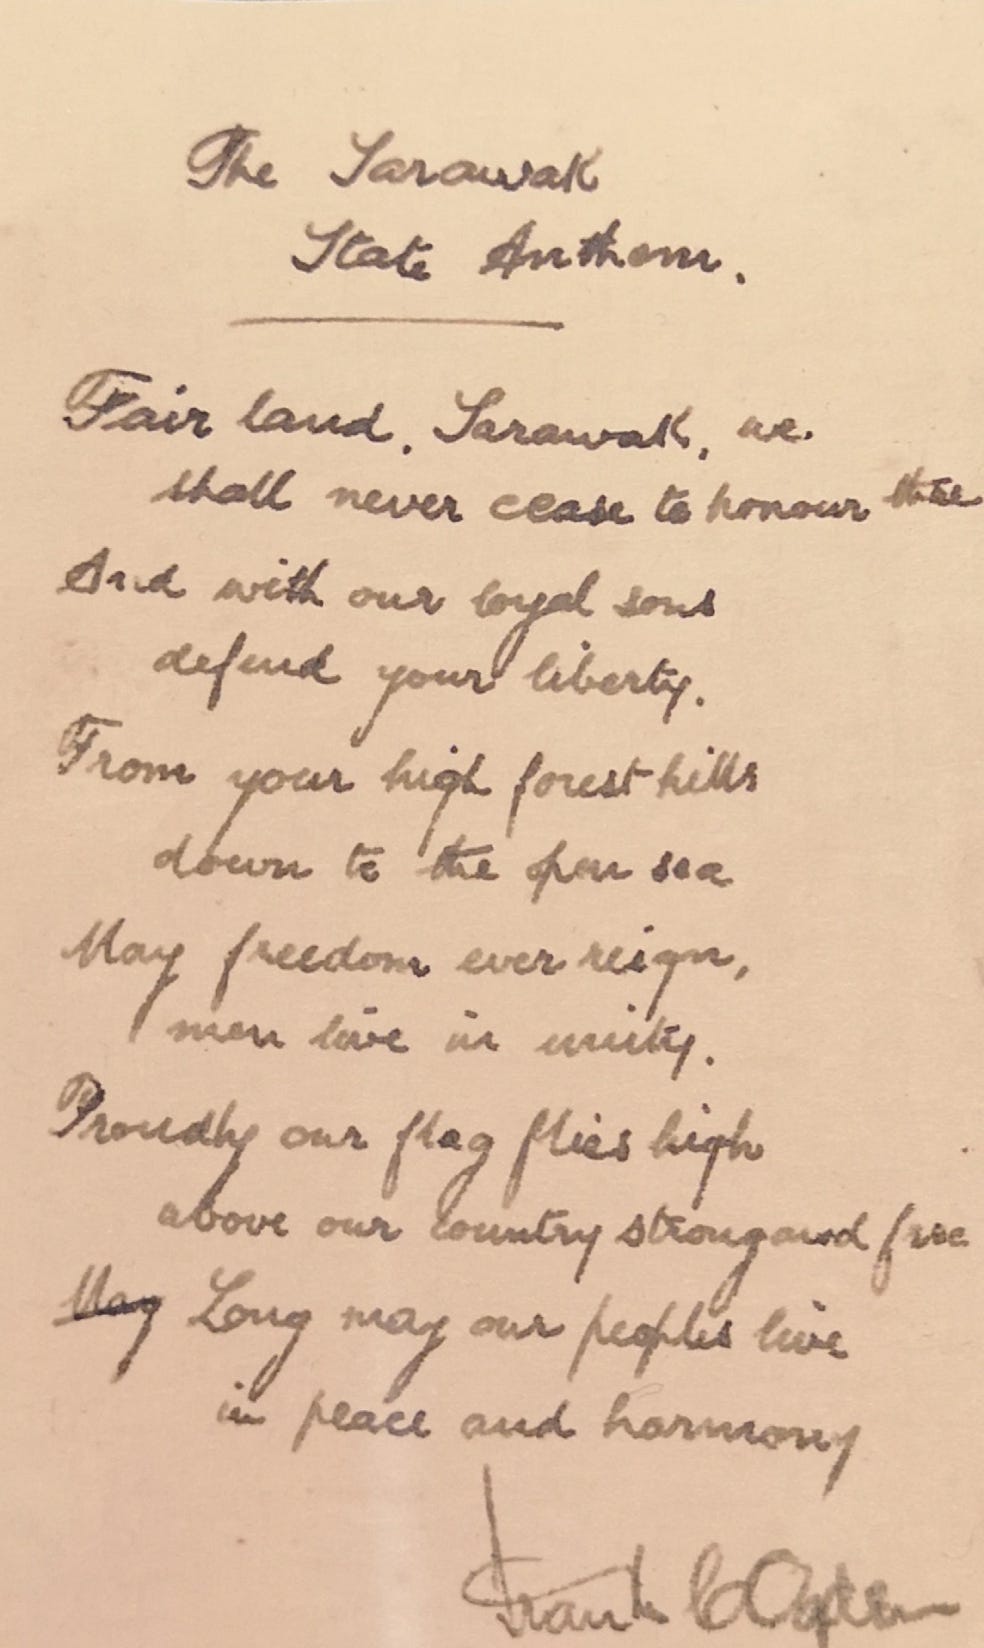 The Sarawak
State Anthem.
Fair land, Sarawak, we
shall never cease to honour thee
And with our loyal sons
defend your liberty.
From your high forest hills
down to the open sea
May freedom ever reign,
men live in unity.
Proudly our flag flies high
above our country strong and free
May Long may our peoples live
in peace and harmony
Frank C Ogden